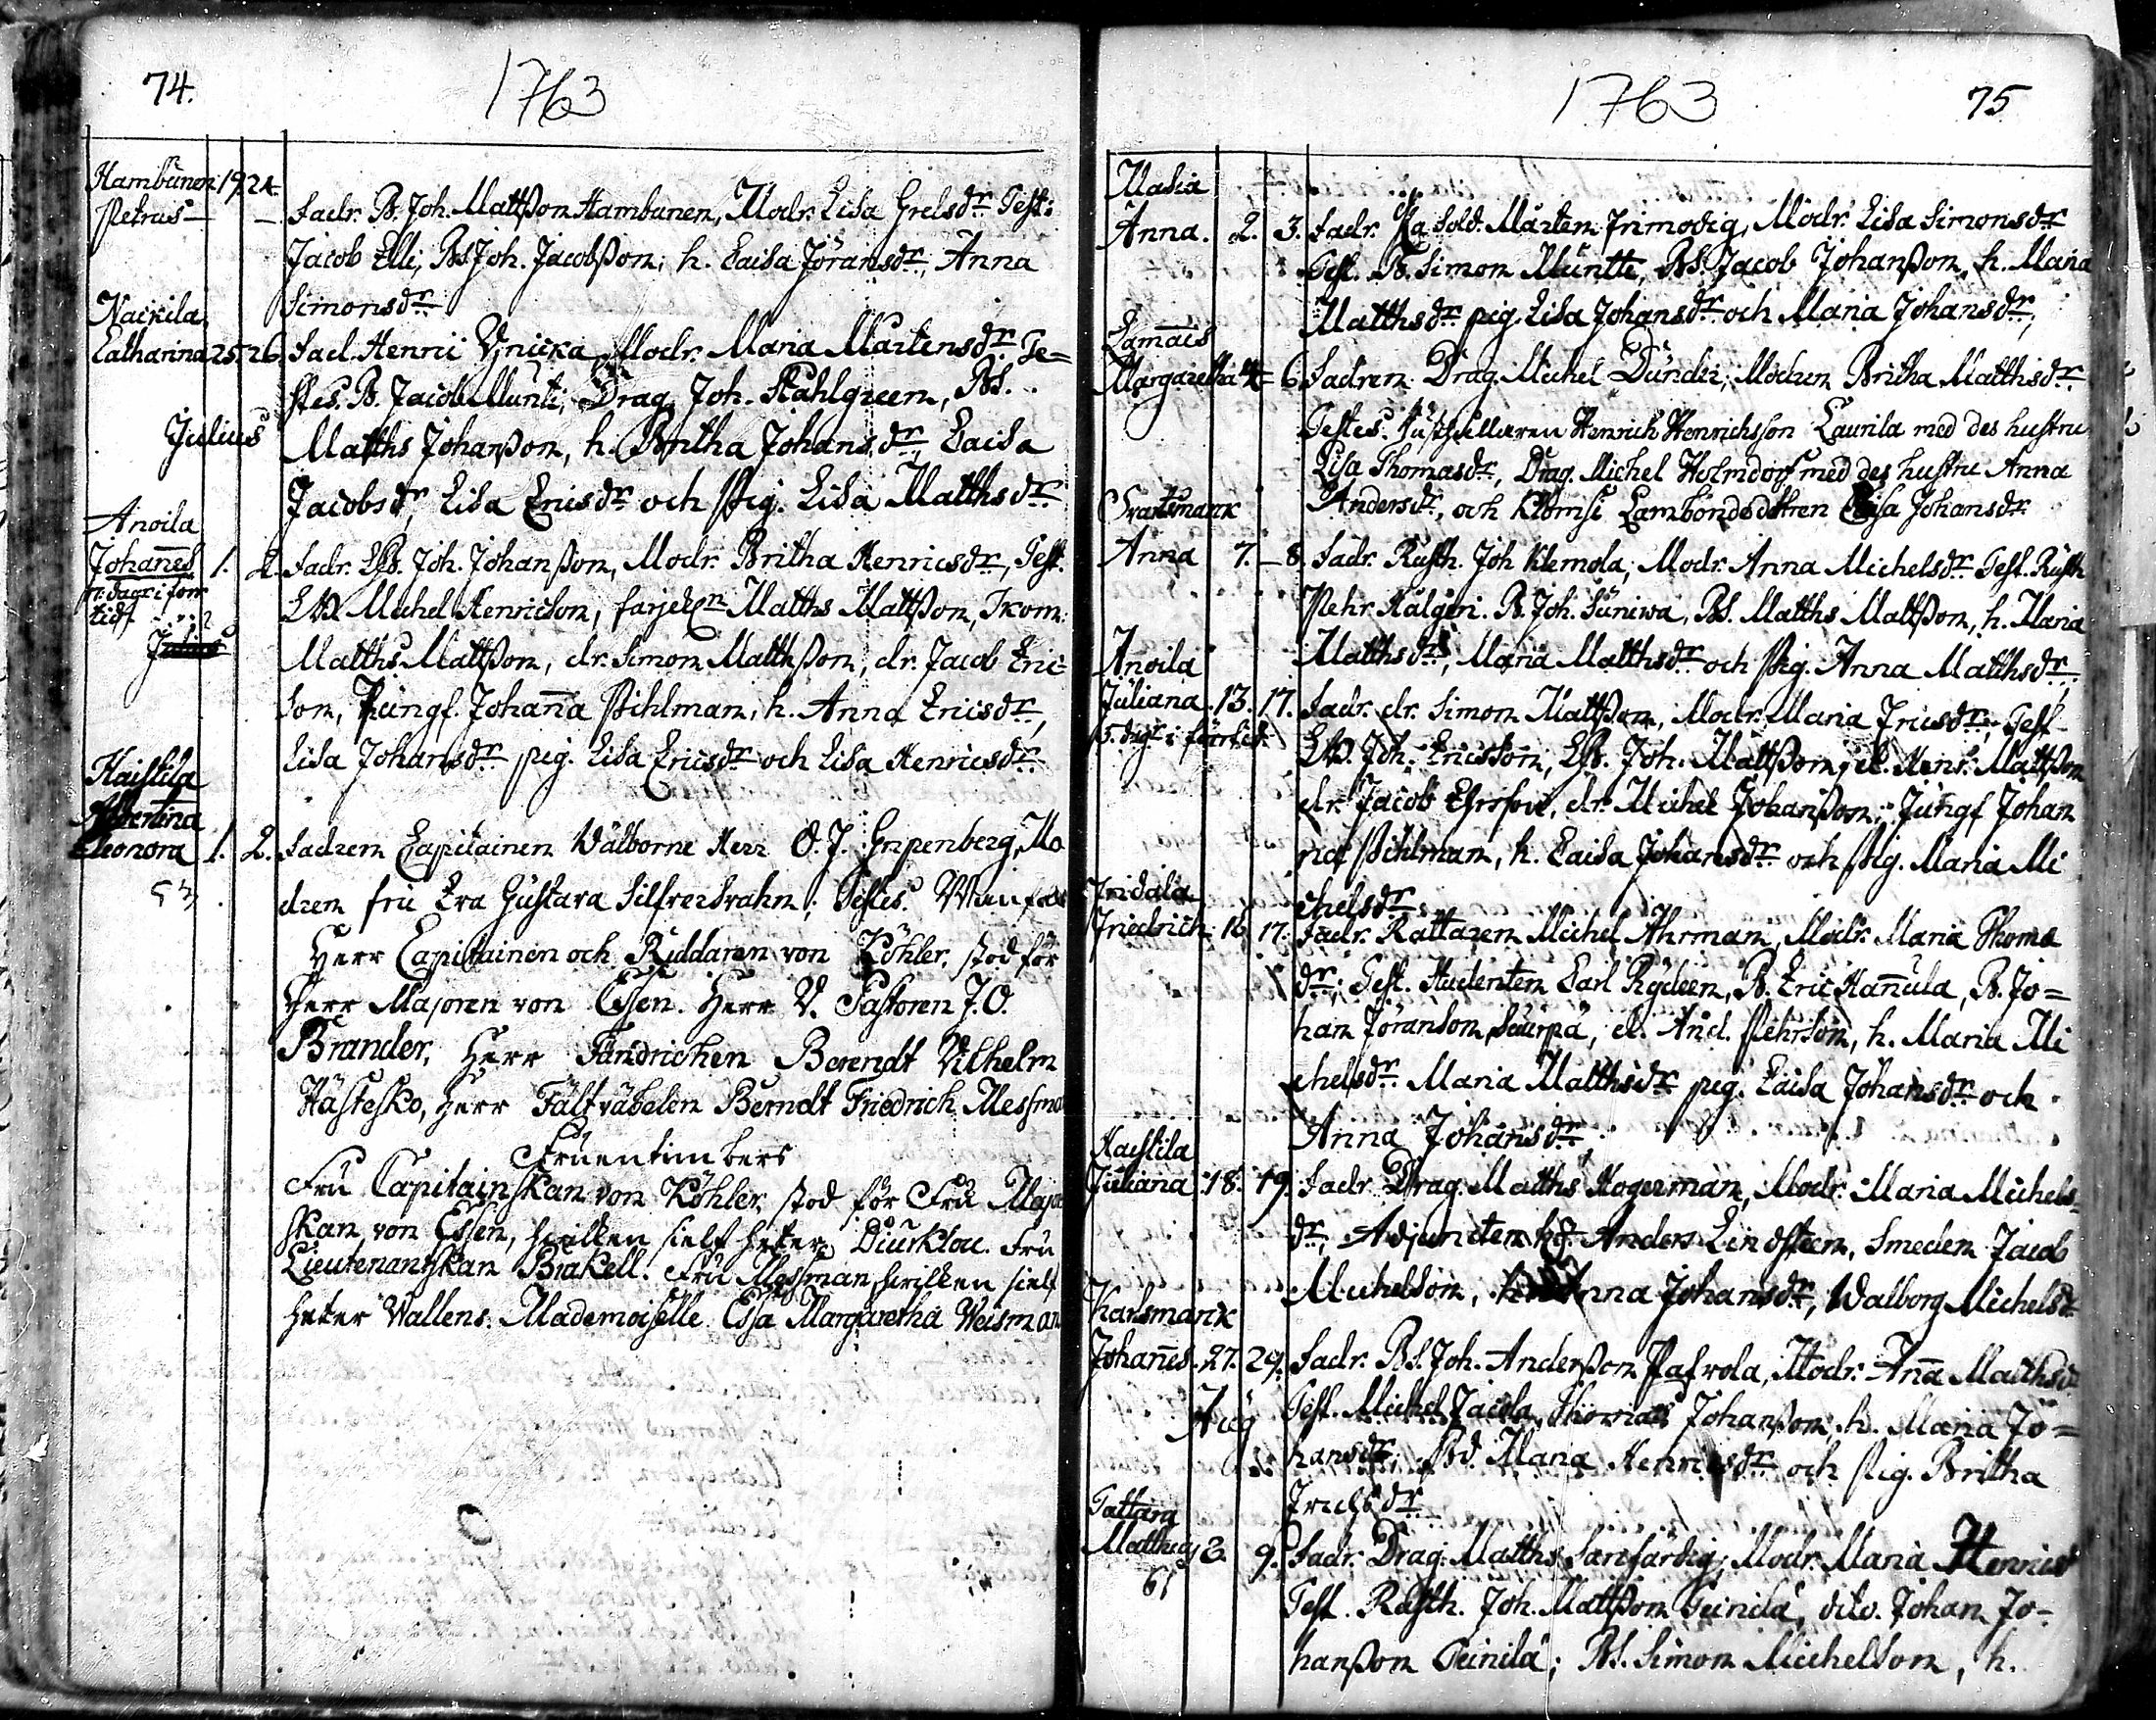 74.
1763
Hambunen 19. 24.
Petrus — — Fadr. B. Joh. Mattßon Hambunen, Modr. Lisa Grelsdr Test:
Jacob Elli, BS Joh. Jacobßon, h. Caisa Jöransdr, Anna
Simonsdr
Nackila
Catharina 25. 26. Fad. Henric Modr. Maria Mårtensdr. Te=
stes. B. Jacob Munti, Drag. Joh. Stahlgreen, BS.
Julius
Matths Johanßon, h. Britha Johansdr, Caisa
Jacobsdr, Lisa Ericsdr och Pig. Lisa Matthsdr
Anoila
Johañes 1. 2. Fadr. LB. Joh. Johanßon, Modr. Britha Henricsdr, Test.
Michel Henricson, Matths Mattßon,
Matths Mattßon, dr. Simon Matthßon, dr. Jacob Eric=
son, Jungf. Johaña Pihlman, h. Anna Ericsdr,
Lisa Johansdr pig. Lisa Ericsdr och Lisa Henricsdr
Haistila
Albertina
Eleonora 1. 2. Fadren Capitainen Wälborne Herr O. J. Gripenberg, Mo
dren fru Eva Gustava Silfversvahn; Testes.
Herr Capitainen och Riddaren von Köhler, stod för
Herr Majoren von Essen. Herr V. Pastoren J. O.
Brander, Herr Fändrichen Berendt Vilhelm
Hästesko, Herr Fältväbelen Berndt Friedrich Messman
Fruentimbers
Fru Capitainskan von Köhler, stod för Fru Major
skan von Essen, hvilken sielf heter Diurklou. Fru
Lieutenantskan Brakell. Fru Messman hvilken sielf
heter Vallens. Mademoiselle Margaretha Weisman
1763
75
Anna. 2. 3. Fadr. Sold. Mårten Frimodig, Modr. Lisa Simonsdr
Test. B. Simon Muntti, BS. Jacob Johanßon, h. Maria
Matthsdr pig. Lisa Johansdr och Maria Johansdr,
Margaretha 4 6. Fadren Drag. Michel Dunder, Modren Britha Matthsdr.
Testes. Rusthållaren Henrich Henrichsson Laurila med des hustru
Lisa Thomasdr, Drag. Michel Holmdorf med des hustru Anna
Svartsmark
Andersdr, och Lambondsdottren Lisa Johansdr
Anna 7. — 8. Fadr. Rusth. Joh Klemola, Modr. Anna Michelsdr Test. Rusth
Pehr Kälgeri. B. Joh. Suniwa, BS. Matths Mattßon, h. Maria
Anoila
Matthsdr, Maria Matthsdr och Pig. Anna Matthsdr,
Juliana 13. 17. Fadr. dr. Simon Mattßon, Modr. Maria Test
Joh. Ericsson, LB. Joh. Mattßon, dr. Henr. Mattßon
dr. Jacob dr. Michel Johanßon; Jungf Johan
na Pihlman, h. Caisa Johansdr och Pig. Maria Mi
Fridala
chelsdr
Friedrich 16. 17. Fadr. Rattaren Michel Ahrman, Modr. Maria Thoma
dr; Test. Studenten Carl Rydeen, B. Eric Hañula, B. Jo=
han Jöranson Saurpä, dr. And. Pehrson, h. Maria Mi
chelsdr. Maria Matthsdr pig. Caisa Johansdr och
Anna Johansdr
Haistila
Juliana 18. 19. Fadr Drag. Matths Hogerman, Modr. Maria Michels
dr, Adjuncten Anders Lindsteen, Smeden Jacob
Michelson, h. Anna Johansdr, Walborg Michelsdr
Karlsmark
Johañes. 27. 29. Fadr. BS. Joh. Anderßon Pafvola, Modr. Aña Matthsdr
Aug
Test. Michel Jacola, Thomas Johanßon, h. Maria Jo=
hansdr, Maria Henricsdr och Pig. Britha
Tattara
Mattheus 8. 9. Fadr. Drag. Matths Sanfärdig, Modr. Maria Henrics
Test. Rusth. Joh. Mattßon Teinilä, dito. Johan Jo=
hanßon Peinilä; BS. Simon Michelson, h.